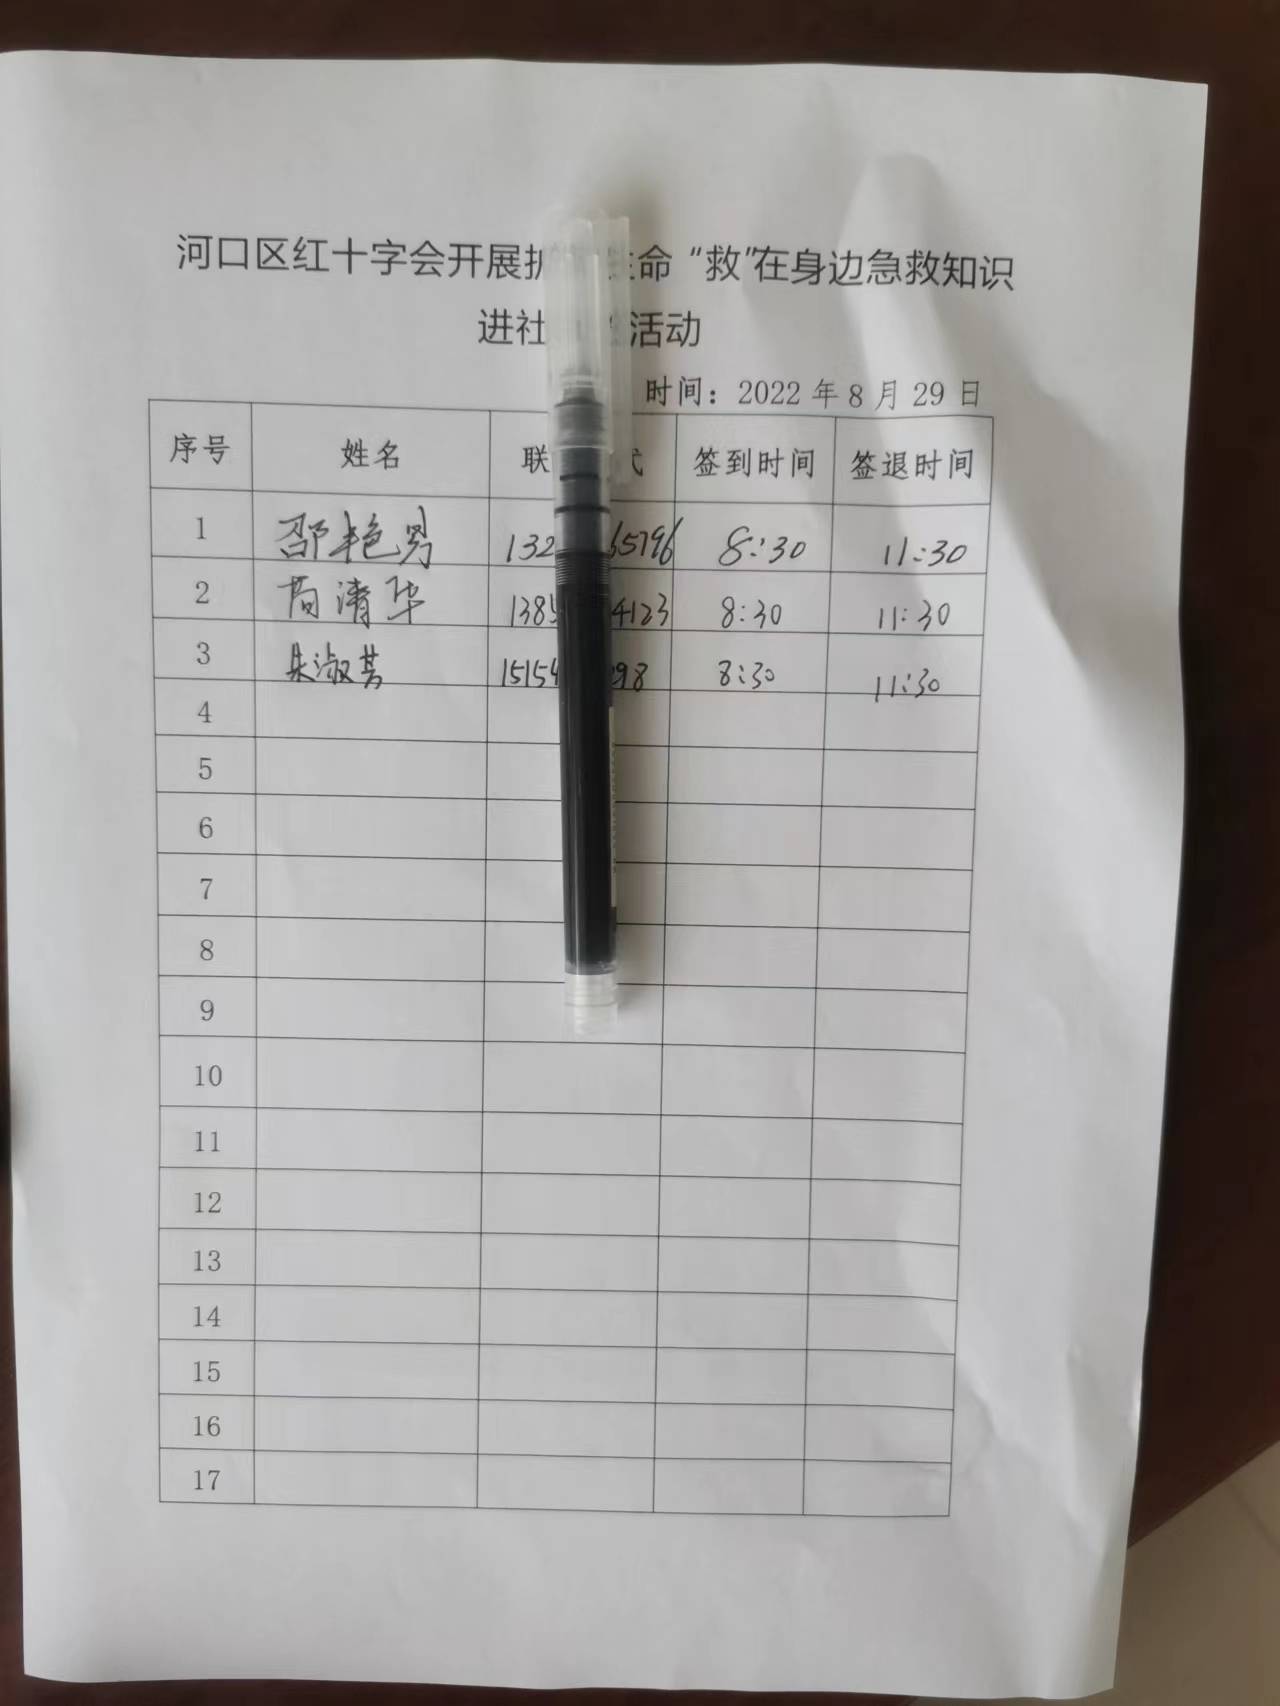 河口区红十字会开展护 生命“救”在身边急救知识
进社 活动
时间：2022年8月29日
序号 姓名 联 式 签到时间 签退时间
1 邵艳男 132 65796 8:30 11:30
2 尚清华 1385 4123 8:30 11:30
3 朱淑芳 15154 098 8:30 11:30
4
5
6
7
8
9
10
11
12
13
14
15
16
17